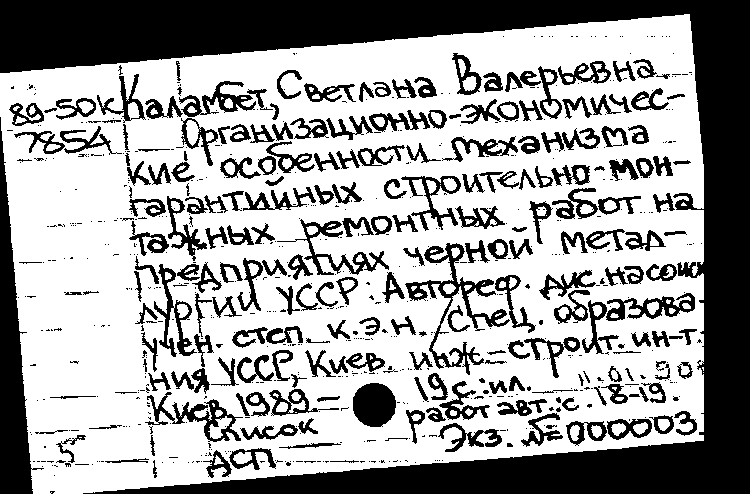 89-50К Каламбет, Светлана Валерьевна.
7854 Организационно-экономичес-
кие особенности механизма
гарантийных строительно-мон-
тажных ремонтных работ на
предприятиях черной метал-
лургии УССР: Автореф. дис. на соиск
учен. степ. к.э.н. / Спец. образова-
ния УССР, Киев. инж.-строит. ин-т.
Киев, 1989.- 19 с.: ил. 11.01.90
Список работ авт.: с. 18-19.
5 ДСП. Экз. № 000003.